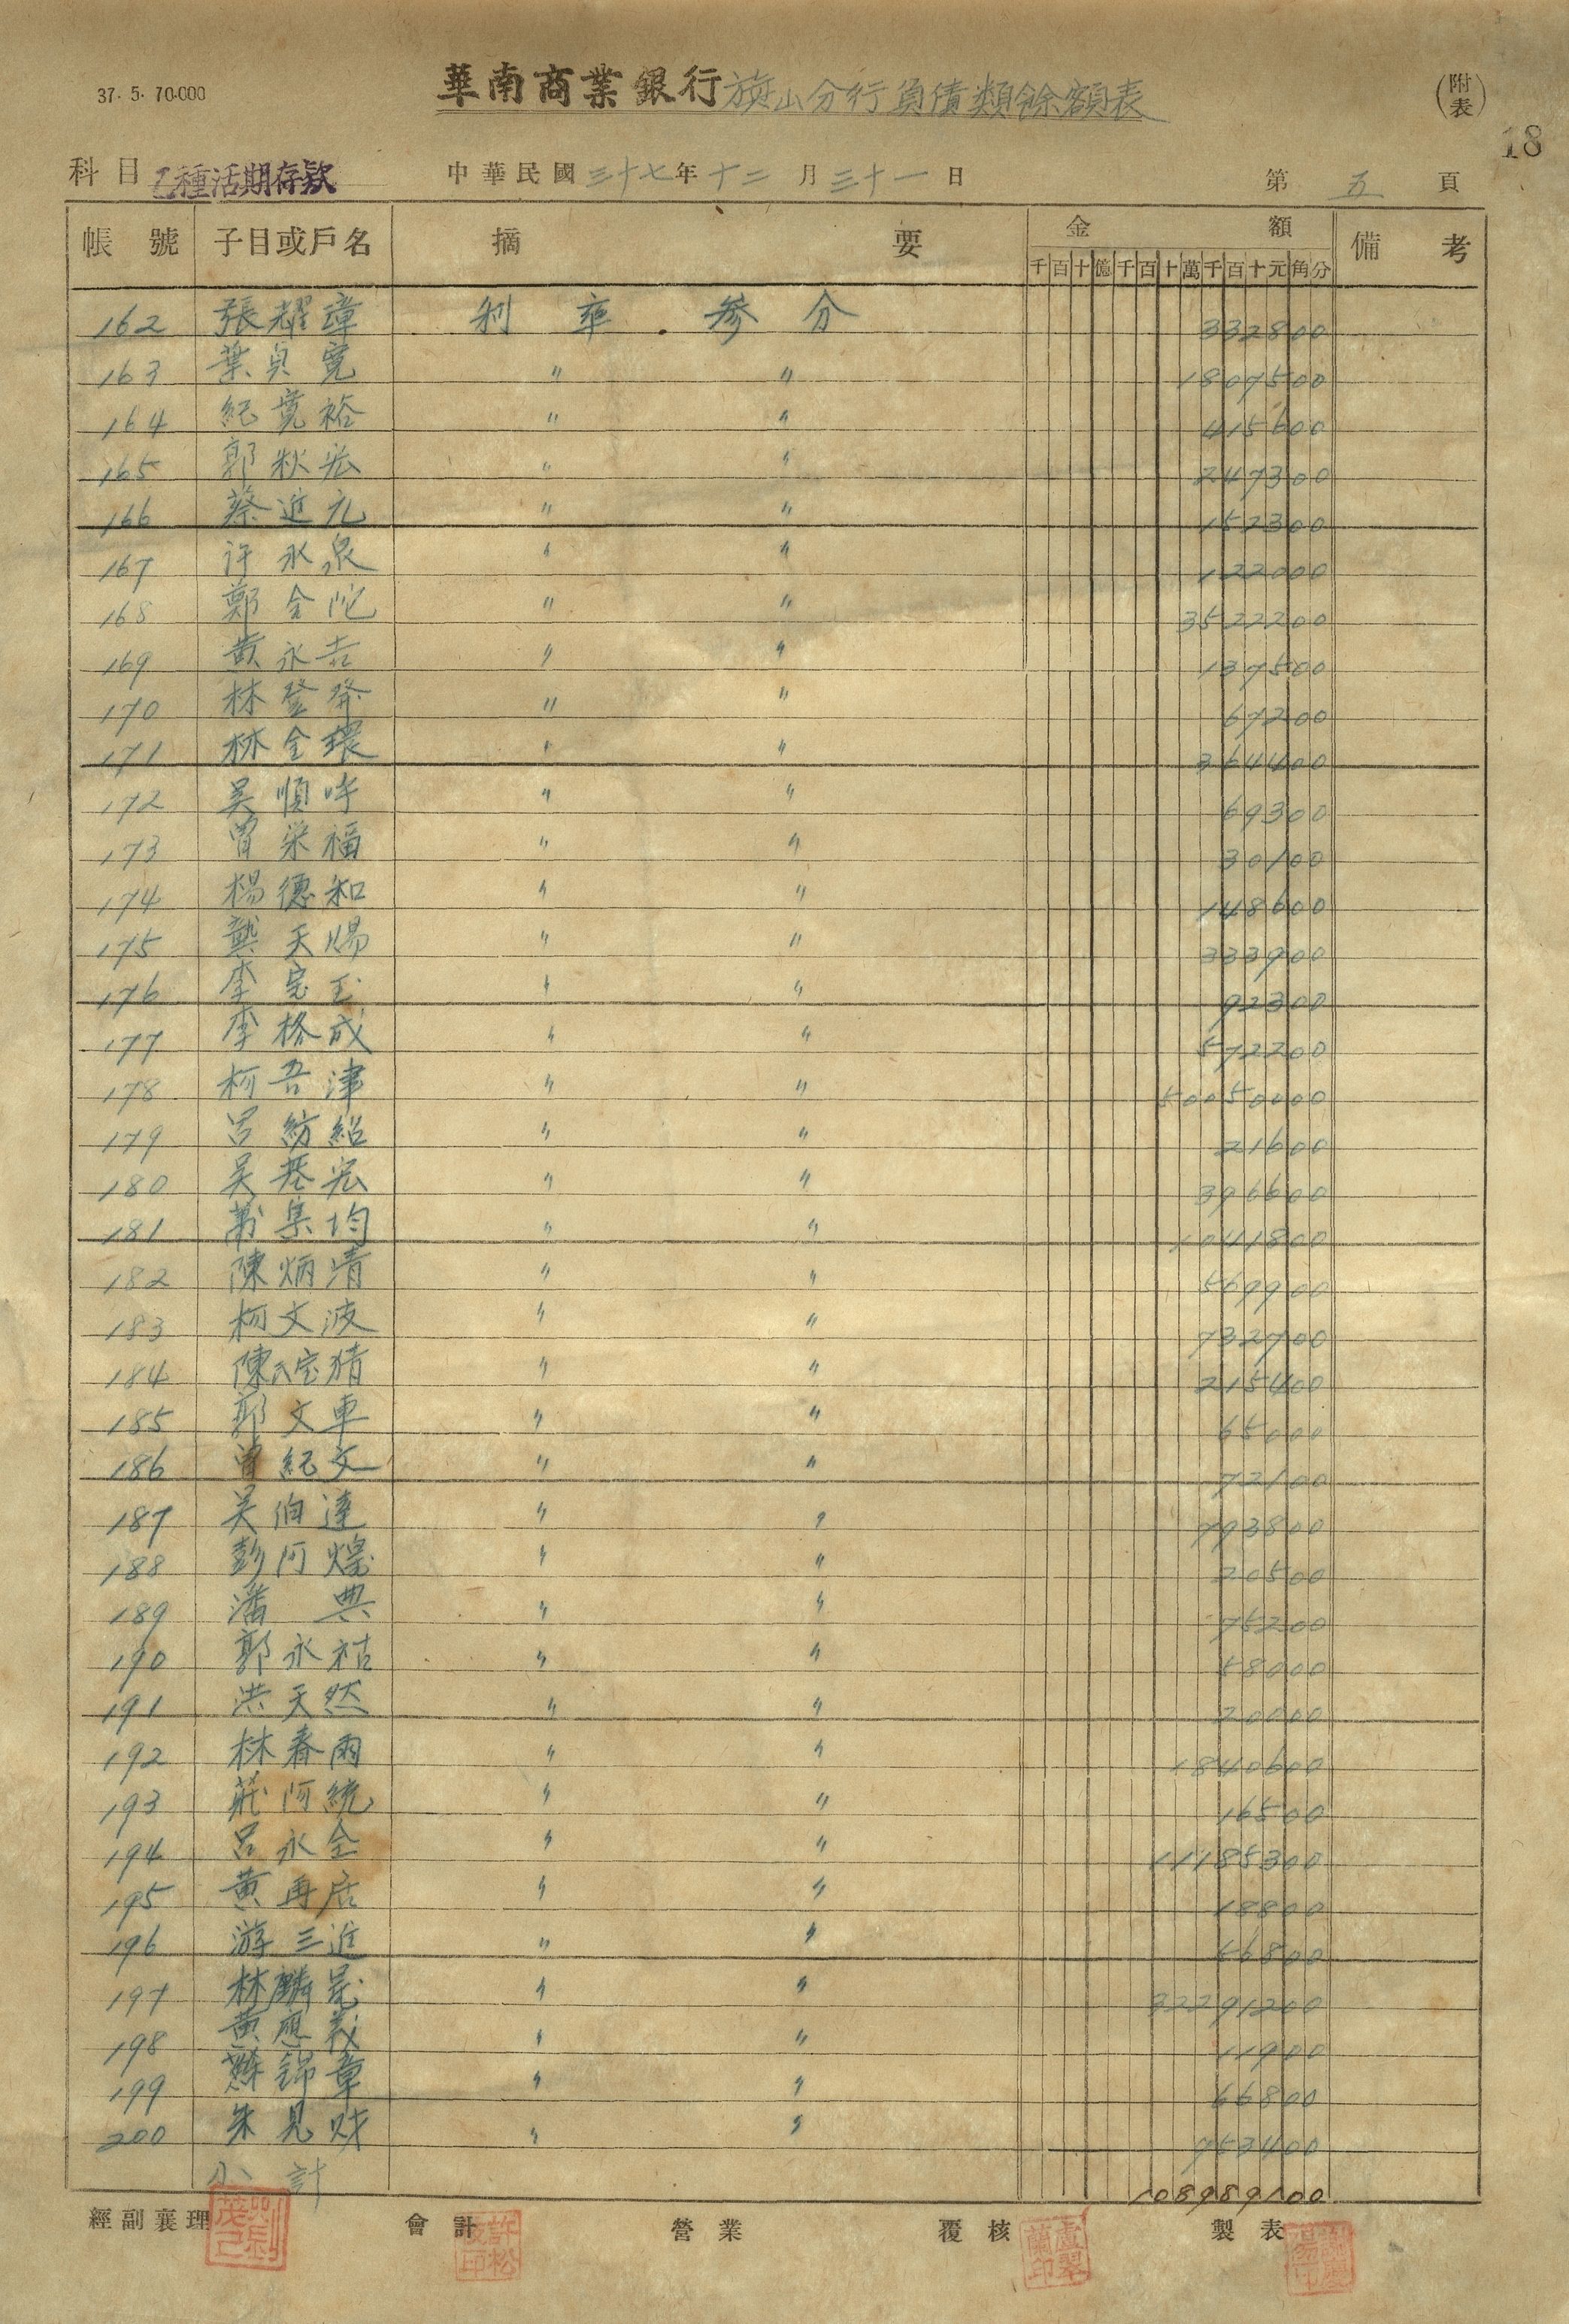 37. 5. 70.000
華南商業銀行旗山分行負債類餘額表
(附表)
18
科目 乙種活期存款 中華民國三十七年十二月三十一日 第五頁
帳號 子目或戶名 摘要 金額 備考
千百十億千百十萬千百十元角分
162 張耀璋 利率參分 332800
163 葉貞寬 〃 〃 1807500
164 紀寬裕 〃 〃 415600
165 郭秋宏 〃 〃 247300
166 蔡進元 〃 〃 152300
167 许永泉 〃 〃 122000
168 鄭金陀 〃 〃 3522200
169 黃永吉 〃 〃 137500
170 林登發 〃 〃 67200
171 林全環 〃 〃 364400
172 吳順呼 〃 〃 69300
173 曾榮福 〃 〃 30100
174 楊德和 〃 〃 148600
175 龔天賜 〃 〃 333900
176 李宗玉 〃 〃 92300
177 李格成 〃 〃 572200
178 柯吾津 〃 〃 50050000
179 呂紡紹 〃 〃 21600
180 吳基宏 〃 〃 396600
181 蕭集均 〃 〃 1041800
182 陳炳清 〃 〃 569900
183 柯文波 〃 〃 732700
184 陳氏宝猜 〃 〃 215400
185 郭文車 〃 〃 65000
186 曾紀文 〃 〃 72100
187 吳伯達 〃 〃 793800
188 彭阿煌 〃 〃 20500
189 潘典 〃 〃 75200
190 郭永祜 〃 〃 58000
191 洪天然 〃 〃 20000
192 林春雨 〃 〃 1840600
193 莊阿統 〃 〃 16500
194 呂永全 〃 〃 11185300
195 黃再居 〃 〃 18800
196 游三進 〃 〃 56800
197 林麟 〃 〃 32291200
198 黃應義 〃 〃 11900
199 蘇錦章 〃 〃 66800
200 朱見财 〃 〃 753400
小計 108989100
經副襄理 會計 營業 覆核 製表
許松
盧翠蘭印